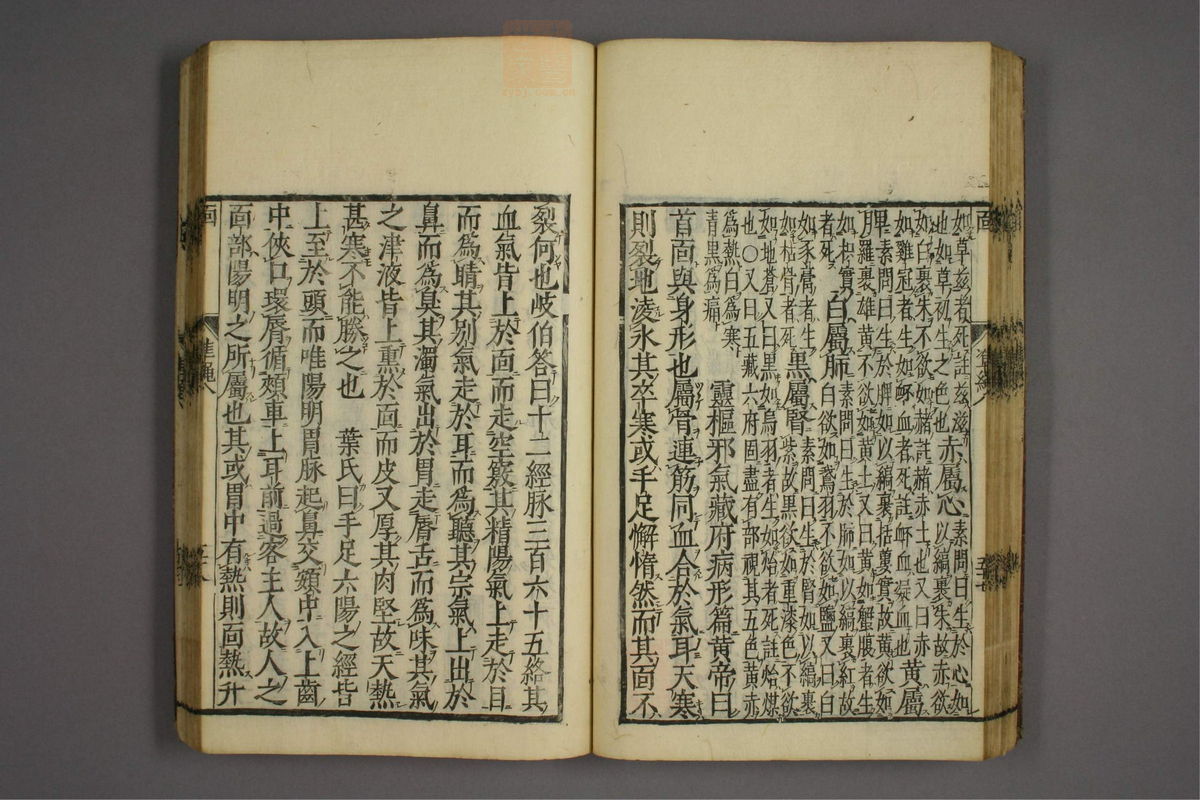 如草茲者死註茲滋
也如草初生之色也
赤屬心
素問曰生於心如
以縞裹朱故赤欲
如白裹朱不欲如赭註赭赤土也又曰赤
如雞冠者生如衃血者死註衃血凝血也
黃屬
脾素問曰生於脾如以縞裹括蔞實故黃欲如
月羅裹雄黃不欲如黃土又曰黃如蟹腹者生
如枳實
者死
白屬肺
素問曰生於肺如以縞裹紅故
白欲如鵞羽不欲如鹽又曰白
如豕膏者生
如枯骨者死
黑屬腎
素問曰生於腎如以縞裹
紫故黑欲如重漆色不欲
如地蒼又曰黑如烏羽者生如炲者死註炲煤
也○又曰五藏六府固盡有部視其五色黃赤
為熱白為寒
青黑為痛
靈樞邪氣藏府病形篇黃帝曰
首靣與身形也屬骨連筋同血合於氣耳天寒
則裂地凌氷其卒寒或手足懈惰然而其靣不
裂何也岐伯答曰十二經脉三百六十五絡其
血氣皆上於靣而走空竅其精陽氣上走於目
而為睛其別氣走於耳而為聽其宗氣上出於
鼻而為臭其濁氣出於胃走唇舌而為味其氣
之津液皆上熏於靣而皮又厚其肉堅故天熱
甚寒不能勝之也　葉氏曰手足六陽之經皆
上至於頭而唯陽明胃脉起鼻交頞中入上齒
中俠口環唇循頰車上耳前過客主人故人之
靣部陽明之所屬也其或胃中有熱則靣熱升